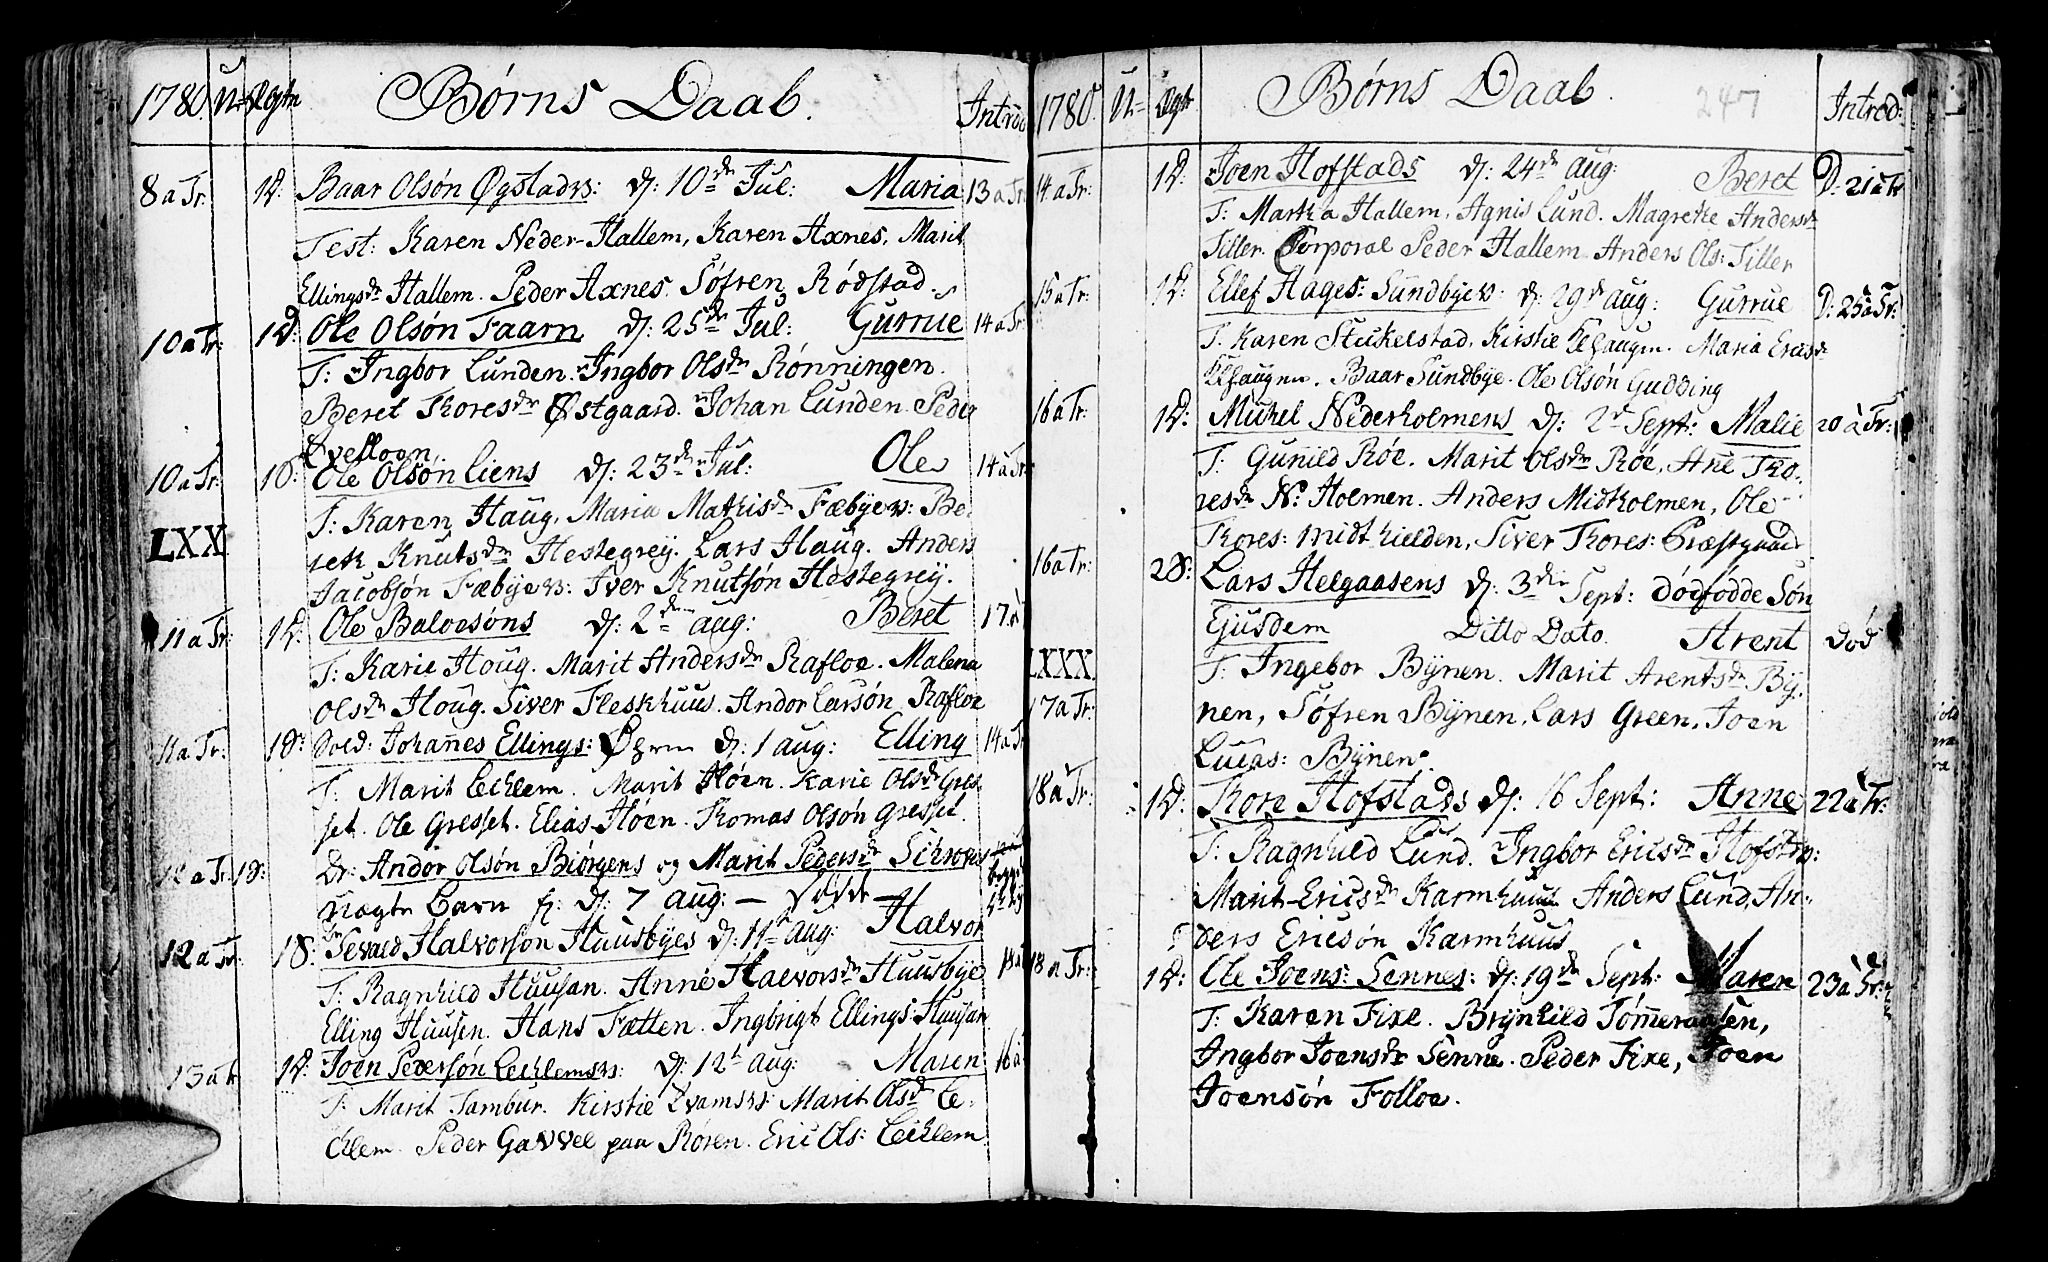 1780. U= Ægte Børns Daab. Introd
8 a Tr. 1 D: Baar Olsøn Øgstads: d: 10de Jul: Maria 13 a Tr.
Test: Karen Neder-Hallem, Karen Axnes, Marit
Ellingsdr Hallem. Peder Axnes. Søfren Rødstad.
10 a Tr: 1 D: Ole Olsøn Faarn d: 25de Jul: Gurrue 14 a Tr.
T: Ingbor Lunden. Ingbor Olsdr Rønningen.
Beret Thoresdr Østgaard. Johan Lunden. Peder
Qvelloen.
10 a Tr. 1 S: Ole Olsøn Liens d: 23de Jul: Ole 14 a Tr.
T: Karen Haug. Maria Mathisdr Fæbye: Be-
LXX reth Knutsdr Hestegrey. Lars Haug. Anders
Jacobsøn Fæbye: Iver Knutsøn Hestegrey.
11 a Tr: 1 D: Ole Baloesøns d: 2de aug: Beret 17 a
T: Karie Houg. Marit Andersdr Rafloe. Malena
Olsdr Houg. Siver Fleskhuus. Andor Larsøn Rafloe
11 a Tr: 1 S: Sold: Johannes Ellings: d: 1 aug: Elling 14 a Tr
T: Marit Lechlem. Marit Høen. Karie Olsdr Gres-
set. Ole Gresset. Elias Høen. Thomas Olsøn Gresset.
12 a Tr. 1 S: Dr: Andor Olsøn Biørgens og Marit Pedersdr
Uægte Barn d: 7 aug: —
12 a Tr. 1 S: Sevald Halvorsøn Huusbyes d: 11te aug: Halvor
T: Ragnhild Huusan. Anne Halvorsdr Huusbye 18 a
Elling Huusen. Hans Fætten. Ingbrigt Ellings: Huusan
13 a Tr 1 D: Joen Pedersøn Lechlems: d: 12t aug: Maren 16 a
T: Marit Tambur. Kirstie Qvams: Marit Olsd Le-
chlem. Peder Gavvel paa Røren. Eric Ols: Lechlem.
1780. U= Ægte Børns Daab. 247 Introd:
14 a Tr: 1 D: Joen Hofstads d: 24de aug: Beret D: 21 a Tr
T: Martha Hallem. Agnis Lund. Magrethe Andersdr
Tiller. Corporal Peder Hallem. Anders Ols: Tiller
15 a Tr: 1 D: Ellef Hages: Sundbyes: d: 29de aug: Gurrue D: 25 a Tr:
T: Karen Stukelstad. Kirstie Elshaugen. Maria Ericsdr
Elshaugen. Baar Sundbye. Ole Olsøn Gudding
16 a Tr: 1 D: Michel Nederholmens d: 2de Sept: Malie 20 a Tr:
T: Gunild Røe. Marit Olsdr Røe, Ane Tho-
resdr N: Holmen. Anders Midtholmen, Ole
Thores: Midtkielden, Siver Thores: Præstgaard
16 a Tr: 2 S: Lars Helgaasens d: 3die Sept: Dødfødde Søn
Ejusdem Ditto Dato. Arent Død
LXXX T: Ingebor Bÿnen. Marit Arentsdr Bÿ-
17 a Tr: nen, Søfren Bÿnen, Lars Green, Joen
Lucas: Bÿnen.
18 a Tr: 1 D: Thore Hofstads d: 16 Sept: Anne 22 a Tr:
T: Ragnhild Lund. Ingbor Ericsdr Hofstad:
Marit Ericsdr Karmhuus Anders Lund, An-
ders Ericsøn Karmhuus
18 a Tr: 1 D: Ole Joens: Sennes: d: 19de Sept: Maren 23 a Tr:
T: Karen Fixe. Brynhild Tømmeraasen,
Ingbor Joensdr Senne. Peder Fixe, Joen
Joensøn Folloe.